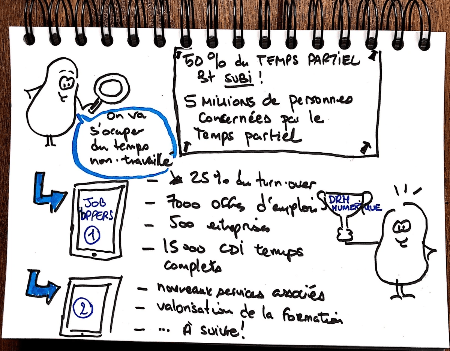 50 % du TEMPS PARTIEL
Est SUBI !
5 Millions de personnes
concernées par le
Temps partiel
On va
s'occuper
du temps
non-travaillé
JOB
OPPERS
1
- ↘ 25 % du turn-over
- 7000 offres d'emplois
- 500 entreprises
- 15 000 CDI temps
complets
DRH
NUMÉRIQUE
2
- nouveaux services associés
- valorisation de la formation
- ... À suivre !